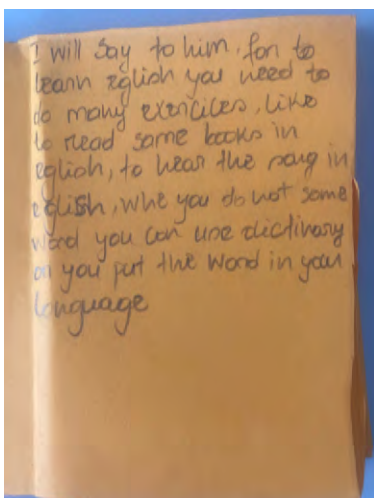 I will say to him, for to
learn eglish you need to
do many exercices, like
to read some books in
eglish, to hear the song in
eglish, whe you do not some
word you can use dictinary
or you put the word in your
language